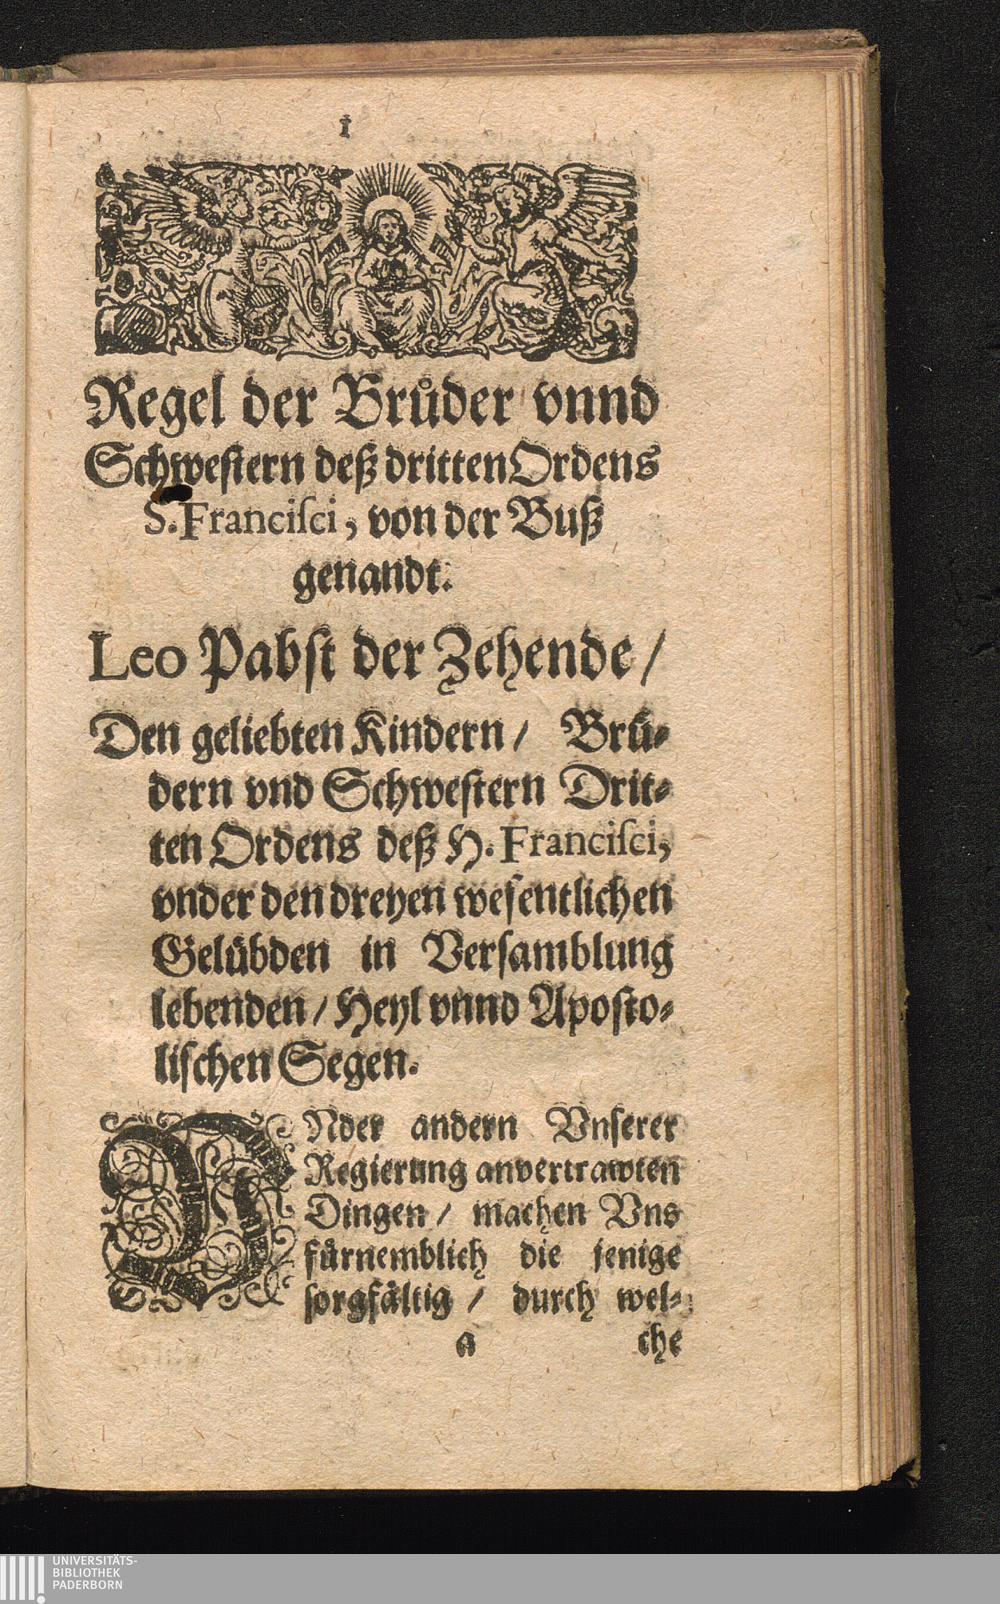 1
Regel der Bruͤder vnnd
Schwestern deß dritten Ordens
S. Franciſci, von der Buß
genandt.
Leo Pabſt der Zehende /
Den geliebten Kindern / Bruͤ-
dern vnd Schweſtern Drit-
ten Ordens deß H. Franciſci,
vnder den dreyen weſentlichen
Geluͤbden in Verſamblung
lebenden / Heyl vnnd Apoſto-
liſchen Segen.
VNder andern Vnſerer
Regierung anvertrawten
Dingen / machen Vns
fuͤrnemblich die jenige
ſorgfaͤltig / durch wel-
a che
UNIVERSITÄTS-
BIBLIOTHEK
PADERBORN